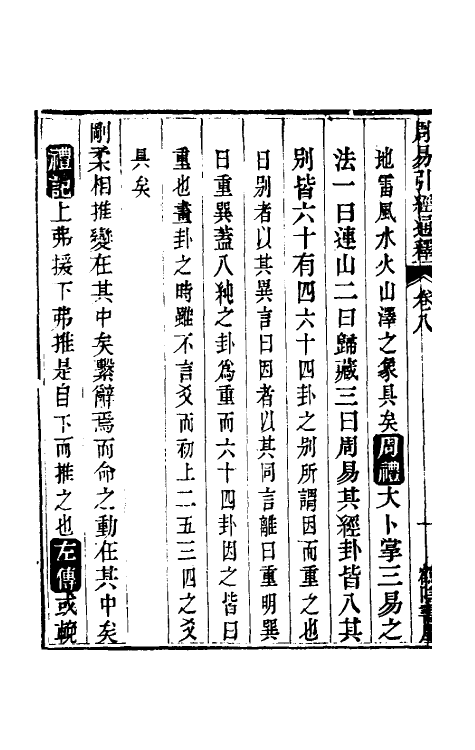 周易引經通釋 卷八 十
地雷風水火山澤之象具矣周禮大卜掌三易之
法一曰連山二曰歸藏三曰周易其經卦皆八其
別皆六十有四六十四卦之別所謂因而重之也
曰別者以其異言曰因者以其同言離曰重明巽
曰重巽蓋八純之卦爲重而六十四卦因之皆曰
重也畫卦之時雖不言爻而初上二五三四之爻
具矣
剛柔相推變在其中矣繫辭焉而命之動在其中矣
禮記上弗援下弗推是自下而推之也左傳或輓